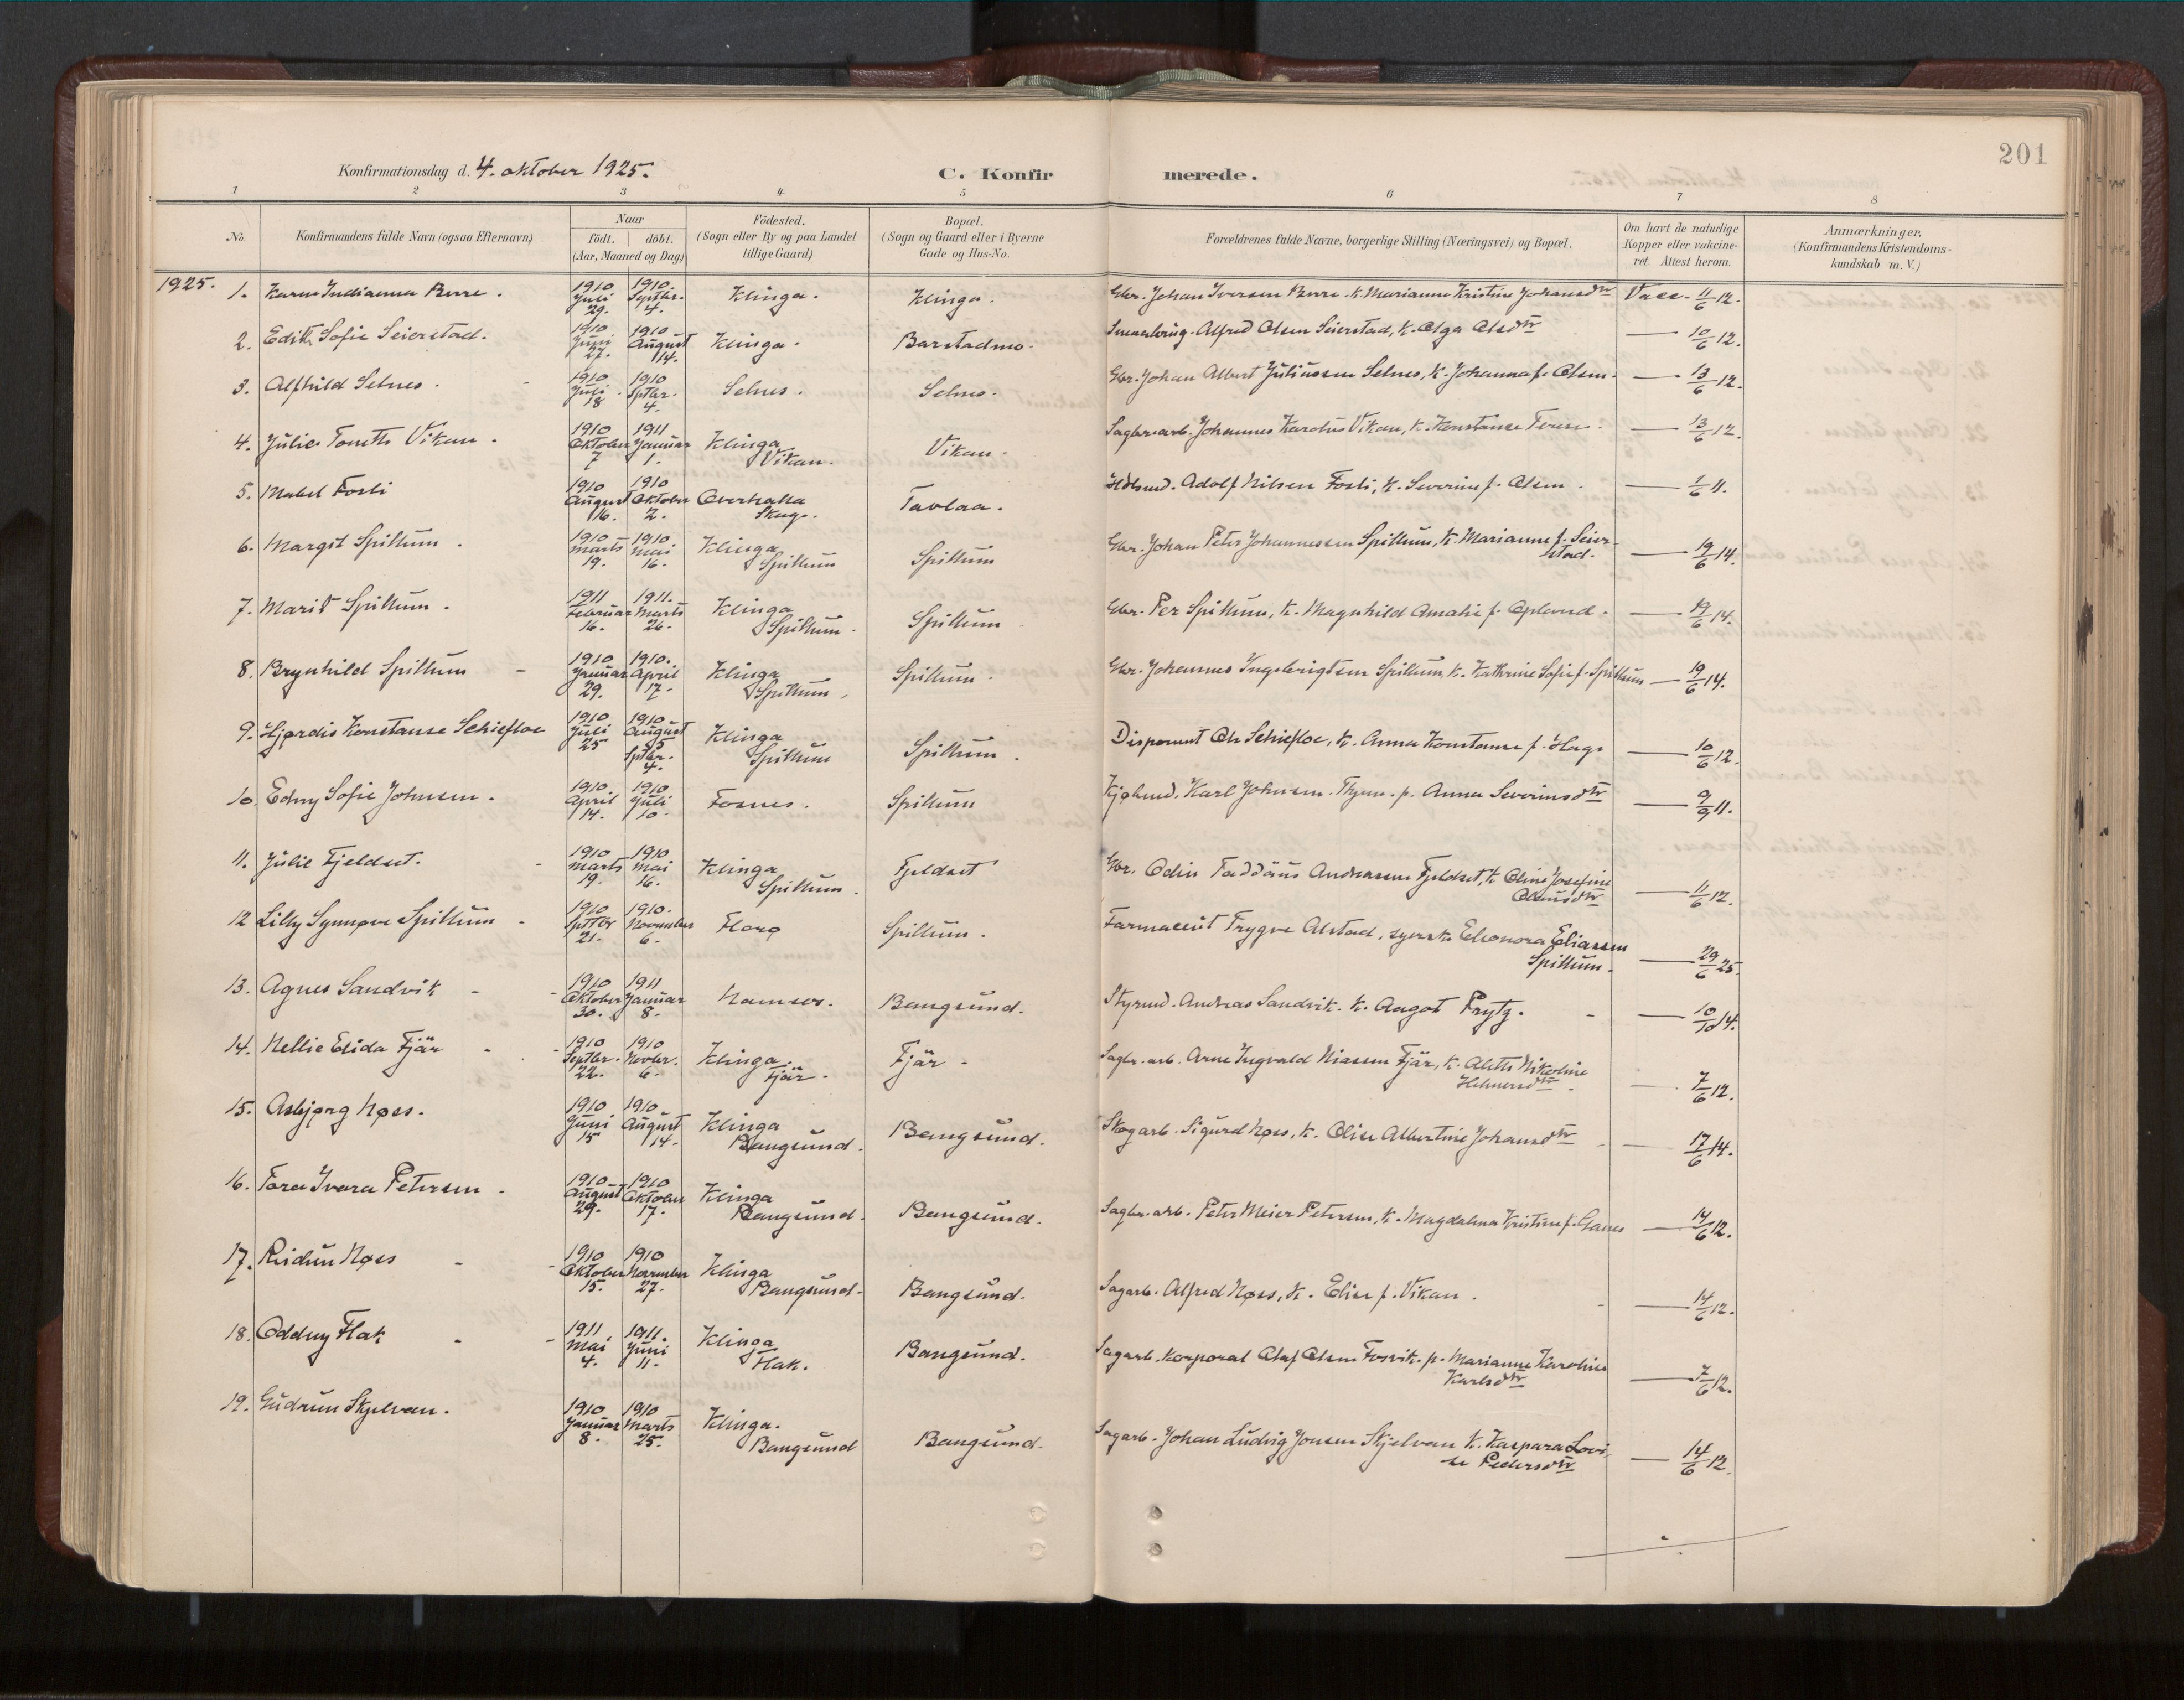 201
Konfirmationsdag d. 4. oktober 1925.
C. Konfirmerede.
1 2 3 4 5 6 7 8
No. Konfirmandens fulde Navn (ogsaa Efternavn) Naar födt. döbt. (Aar, Maaned og Dag) Födested. (Sogn eller By og paa Landet tillige Gaard) Bopæl. (Sogn og Gaard eller i Byerne Gade og Hus-No. Forældrenes fulde Navne, borgerlige Stilling (Næringsvei) og Bopæl. Om havt de naturlige Kopper eller vakcineret. Attest herom. Anmærkninger, (Konfirmandens Kristendomskundskab m. V.)
1925. 1. Indianna . 1910 Juli 29. 1910. Septbr. 4. Klinga. Klinga. Gbr. Johan Iversen k. Marianne Kristine Johansdtr Vacc. 11/6 12.
2. Edith Sofie Seierstad. 1910 Juni 27. 1910 August 14. Klinga. Barstadmo. Alfred Olsen Seierstad, k. Olga Olsdtr — 10/6 12.
3. Alfhild Selnes. 1910 Juli 18 1910 Sptbr. 4. Selnes. Selnes. Gbr. Johan Albert Juliussen Selnes, k. Johanna f. Olsen. — 13/6 12.
4. Julie Tonette Vikan. 1910 Oktober 7 1911 Januar 1. Klinga Vikan. Vikan. Sagbr.arb. Johannes Karolus Vikan, k. Konstanse — 13/6 12.
5. Mabel Fosli 1910 August 16. 1910 Oktober 2. Overhalla Skage. Tavlaa. Adolf Nilsen Fosli, k. Severine f. Olsen. — 1/6 11.
6. Margit Spillum. 1910 Marts 19. 1910 Mai 16. Klinga Spillum Spillum Gbr. Johan Peter Johannessen Spillum, k. Marianne f. Seierstad. — 19/6 14.
7. Marit Spillum. 1911 Februar 16. 1911. Marts 26. Klinga Spillum. Spillum Gbr. Per Spillum, k. Magnhild Amalie f. Oplund. — 19/6 14.
8. Brynhild Spillum - 1910 Januar 29. 1910. April 17. Klinga Spillum. Spillum. Gbr. Johannes Ingebrigtsen Spillum, k. Kathrine Sofie f. Spillum — 19/6 14.
9. Hjørdis Konstanse Schiefloe 1910 Juli 25 1910 August Sptbr. 4. Klinga Spillum Spillum. Disponent Ole Schiefloe, k. Anna Konstanse f. Hage — 10/6 12.
10. Edny Sofie Johnsen. 1910. April 14. 1910 Juli 10. Fosnes. Spillum Kjøbmd. Karl Johnsen. p. Anna Severinsdtr — 9/9 11.
11. Julie Fjeldset. - 1910 Marts 19. 1910 Mai 16. Klinga Spillum. Fjeldset Gbr. Odin Taddäus Andreassen Fjeldset, k. Oline Josefine — 11/6 12.
12 Lilly Synnøve Spillum - 1910 Sptbr 21. 1910. November 6. Florø Spillum. Farmaceut Trygve Alstad, syerske Eleonora Eliassen Spillum. — 29/6 25.
13. Agnes Sandvik - - 1910 Oktober 30. 1911 Januar 8. Namsos. Bangsund. Styrmd. Andreas Sandvik. k. Aagot Prytz. - — 10/10 14.
14. Nellie Elida Fjär - - 1910 Septbr. 22. 1910 Novbr. 6. Klinga. Fjär. Fjär - Sagbr. arb. Arne Ingvald Niassen Fjär, k. Alette Nikoline Helmersdtr. — 7/6 12.
15. Asbjørg Nøss. 1910 Juni 15 1910. August 14. Klinga Bangsund. Bangsund. Skogarb. Sigurd Nøss, k. Elise Albertine Johansdtr - — 17/6 14.
16. Tora Ivara Petersen. 1910 August 29. 1910 Oktober 17. Klinga Bangsund. Bangsund. Sagbr.arb. Peter Meier Petersen, k. Magdalena Kristine f. — 14/6 12.
17. Reidun Nøss - - 1910 Oktober 15. 1910 November 27. Klinga Bangsund. Bangsund. Sagarb. Alfred Nøss, k. Elise f. Vikan. - — 14/6 12.
18. Oddny Flak - - 1911 Mai 4. 1911. Juni 11. Klinga Flak. Bangsund. Sagarb. Korporal Olaf Olsen Fosvik. p. Marianne Karoline Karlsdtr — 7/6 12.
19. Gudrun Skjelvan. 1910 Januar 8. 1910 Marts 25. Klinga. Bangsund Bangsund. Sagarb. Johan Ludvig Jonsen Skjelvan k. Kaspara Lovise Pedersdtr — 14/6 12.